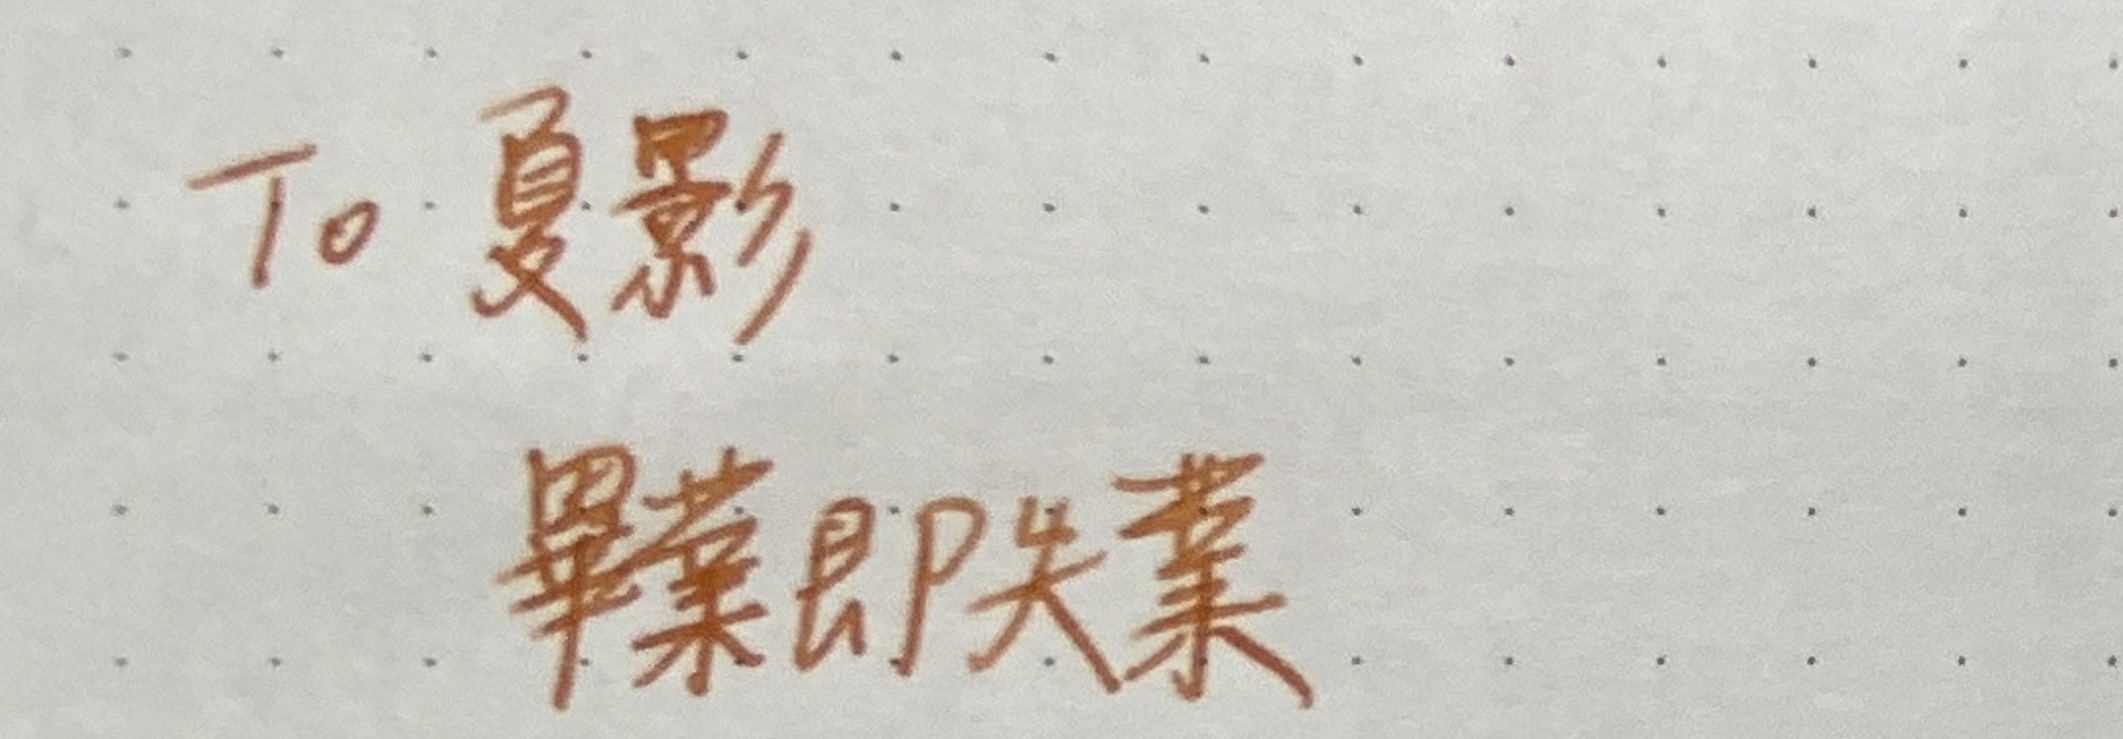 To 夏影
畢業即失業